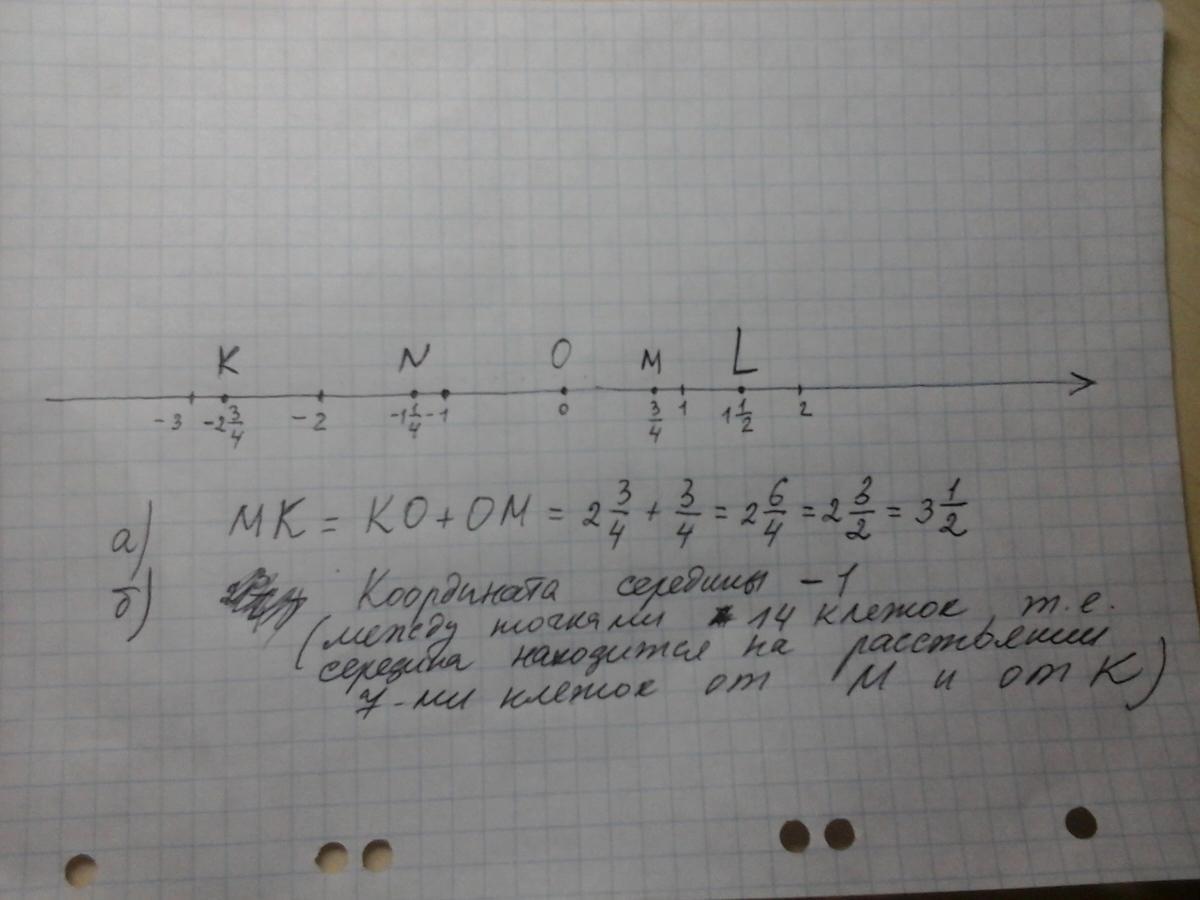 K N O M L
-3 -2 3/4 -2 -1 1/4 -1 0 3/4 1 1 1/2 2
а) MK = KO + OM = 2 3/4 + 3/4 = 2 6/4 = 2 3/2 = 3 1/2
б) Координата середины -1
(между точками 14 клеток, т.е.
середина находится на расстоянии
7-ми клеток от M и от K)